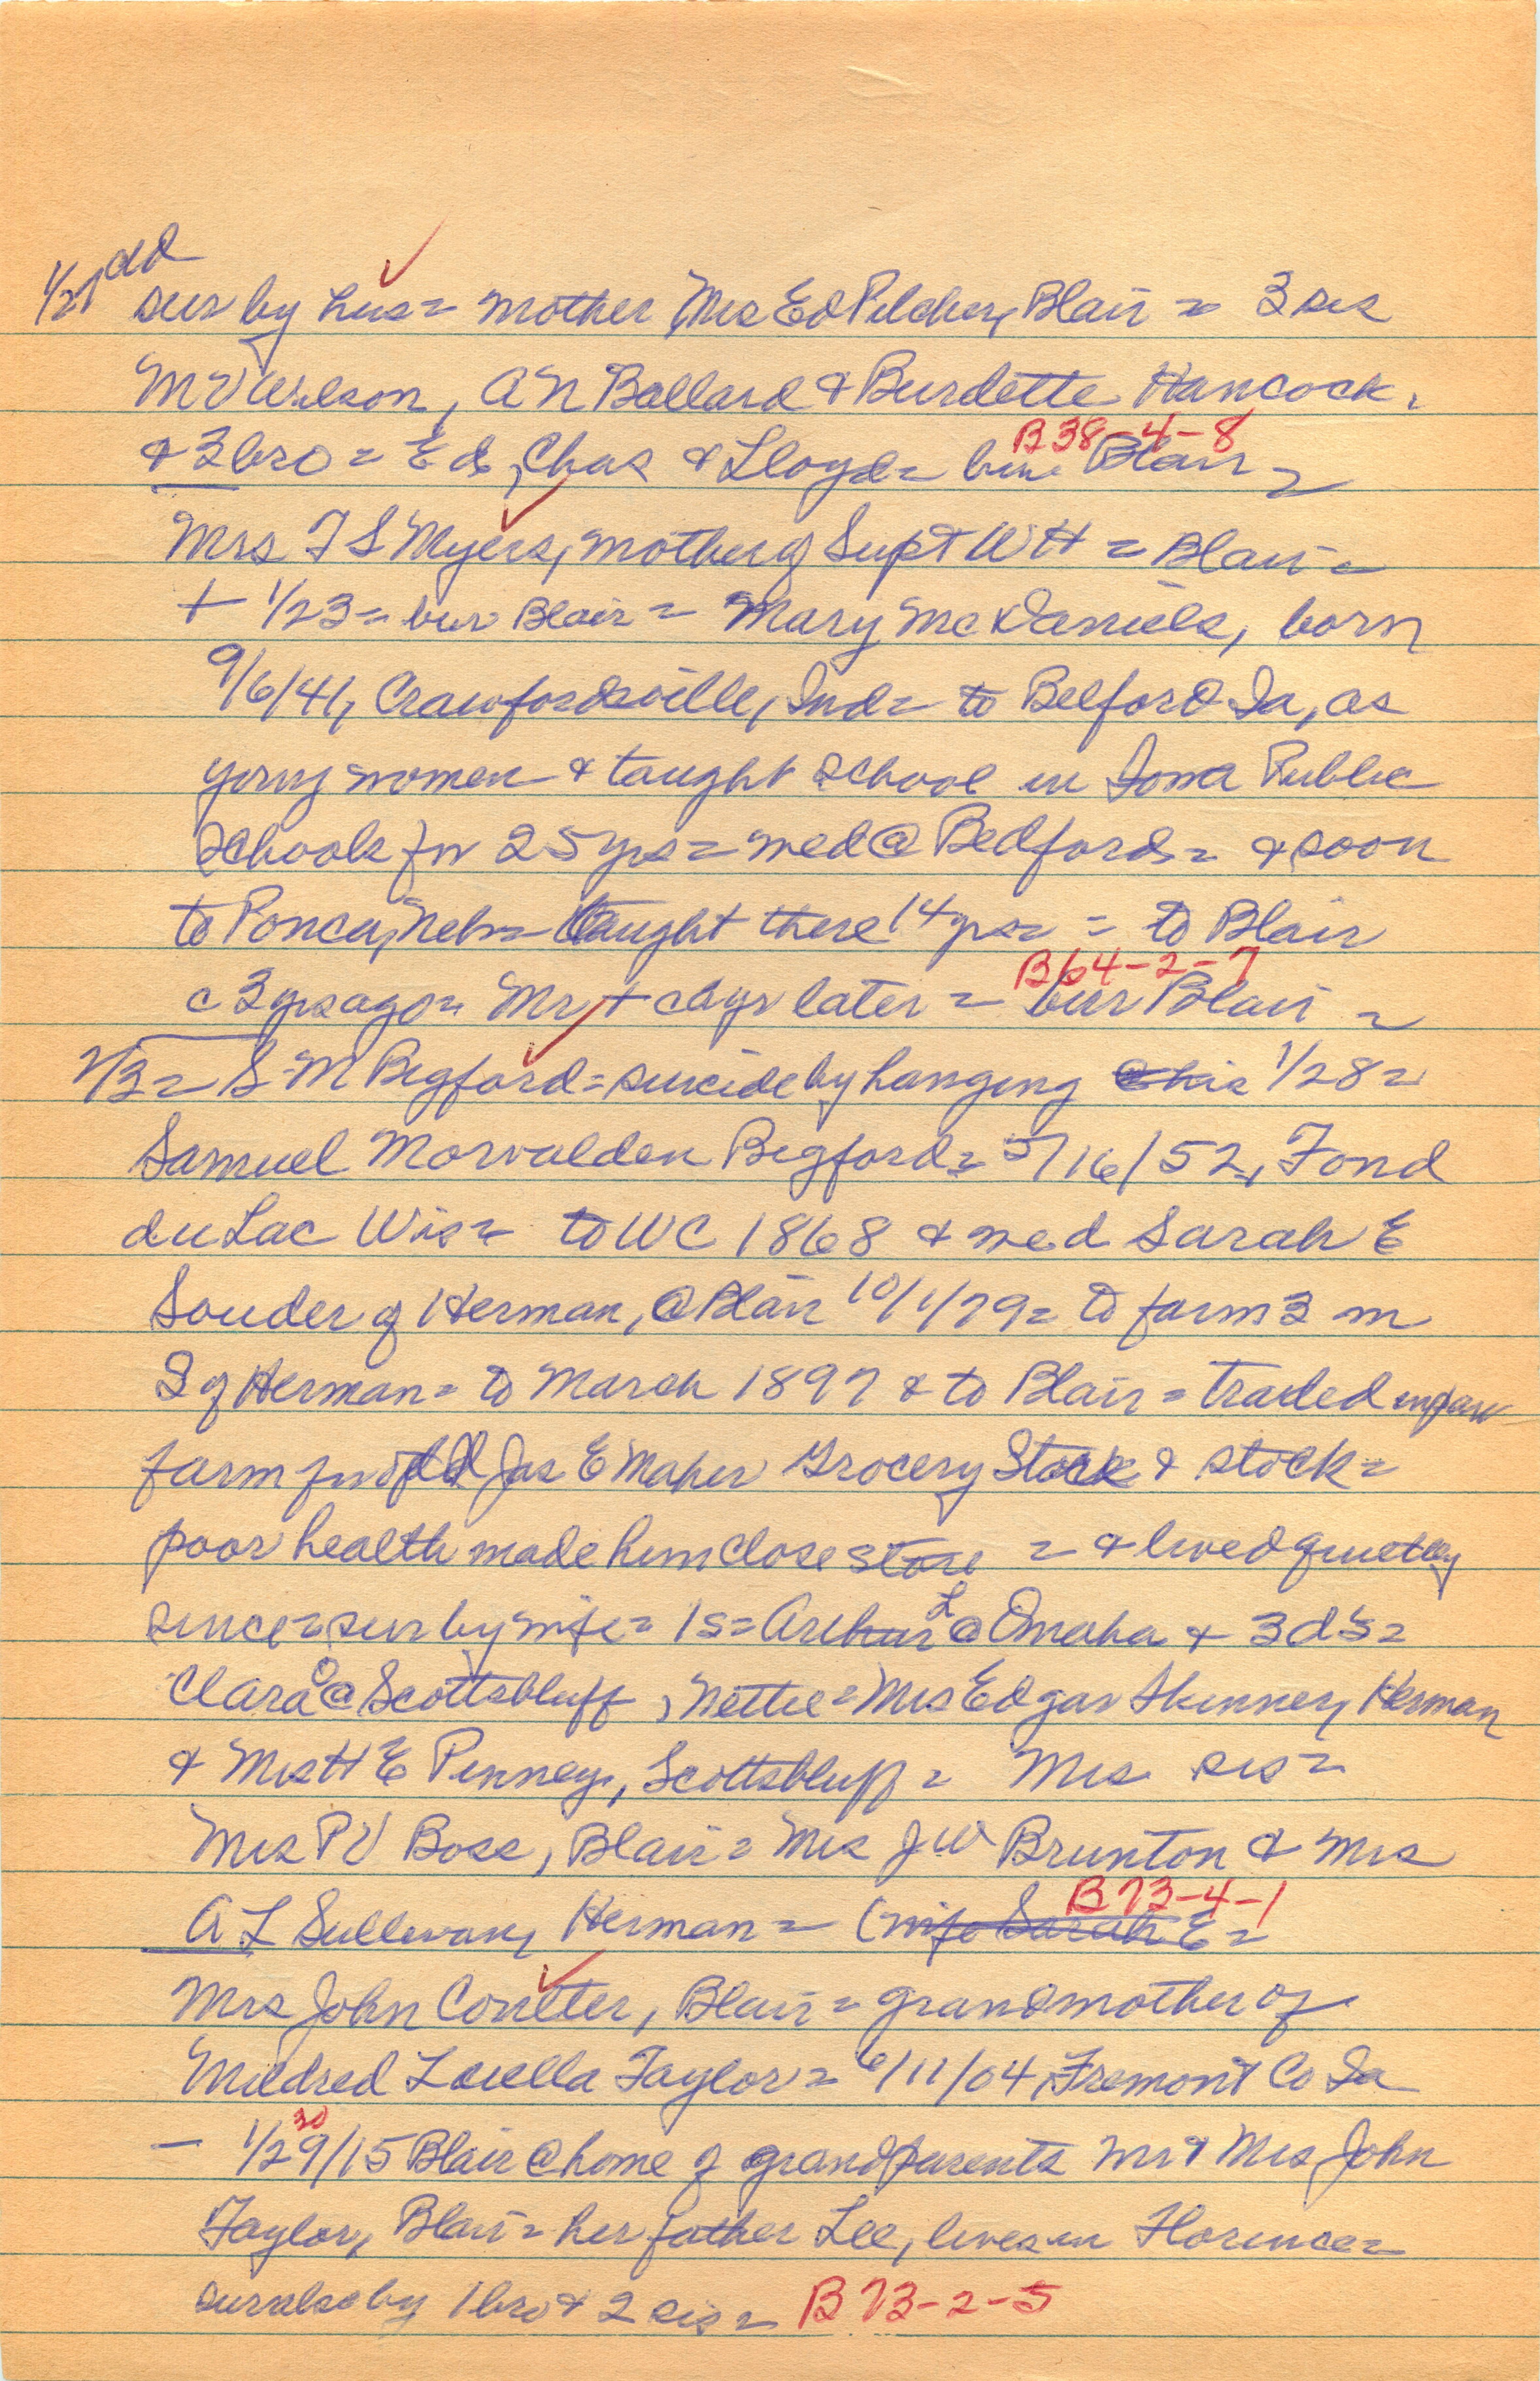 1/27 add
sur by hus = mother Mrs Ed Pilcher, Blair = 3 sis
M V Wilson, A N Ballard & Burdette Hancock,
& 3 bro = Ed, Chas & Lloyd = bur Blair =
B 38-4-8
Mrs T S Myers, mother of Supt W H = Blair =
+ 1/23 = bur Blair = Mary McDaniels, born
9/6/41, Crawfordsville, Ind = to Belford Ia, as
young women & taught school in Iowa Public
Schools for 25 yrs = med @ Bedford = & soon
to Ponca, Neb = taught there 14 yrs = to Blair
B 64-2-7
c 3 yrs ago = Mr + days later = bur Blair =
2/3 = S M Bigford = suicide by hanging @ his 1/28 =
Samuel Morvalden Bigford = 5/16/52, Fond
du Lac Wis = to WC 1868 & med Sarah E
Souder of Herman, @ Blair 10/1/79 = to farm 3 m
S of Herman = to March 1897 & to Blair = traded
farm for old Jas E Maher Grocery Store & stock =
poor health made him close store = & lived quietly
since = sur by wife = 1 s = Arthur L @ Omaha & 3 d's =
Clara O @ Scottsbluff, Nettie = Mrs Edgar Skinner, Herman
& Mrs H E Penney, Scottsbluff = Mrs sis =
Mrs P V Boss, Blair = Mrs J W Brunton & Mrs
B 73-4-1
A L Sullivan, Herman = (wife Sarah E =
Mrs John Coulter, Blair = grandmother of
Mildred Louella Taylor = 6/11/04, Fremont Co Ia
30
- 1/29/15 Blair @ home of grandparents Mr & Mrs John
Taylor, Blair = her father Lee, lives in Florence =
sur also by 1 bro & 2 sis = B 73-2-5